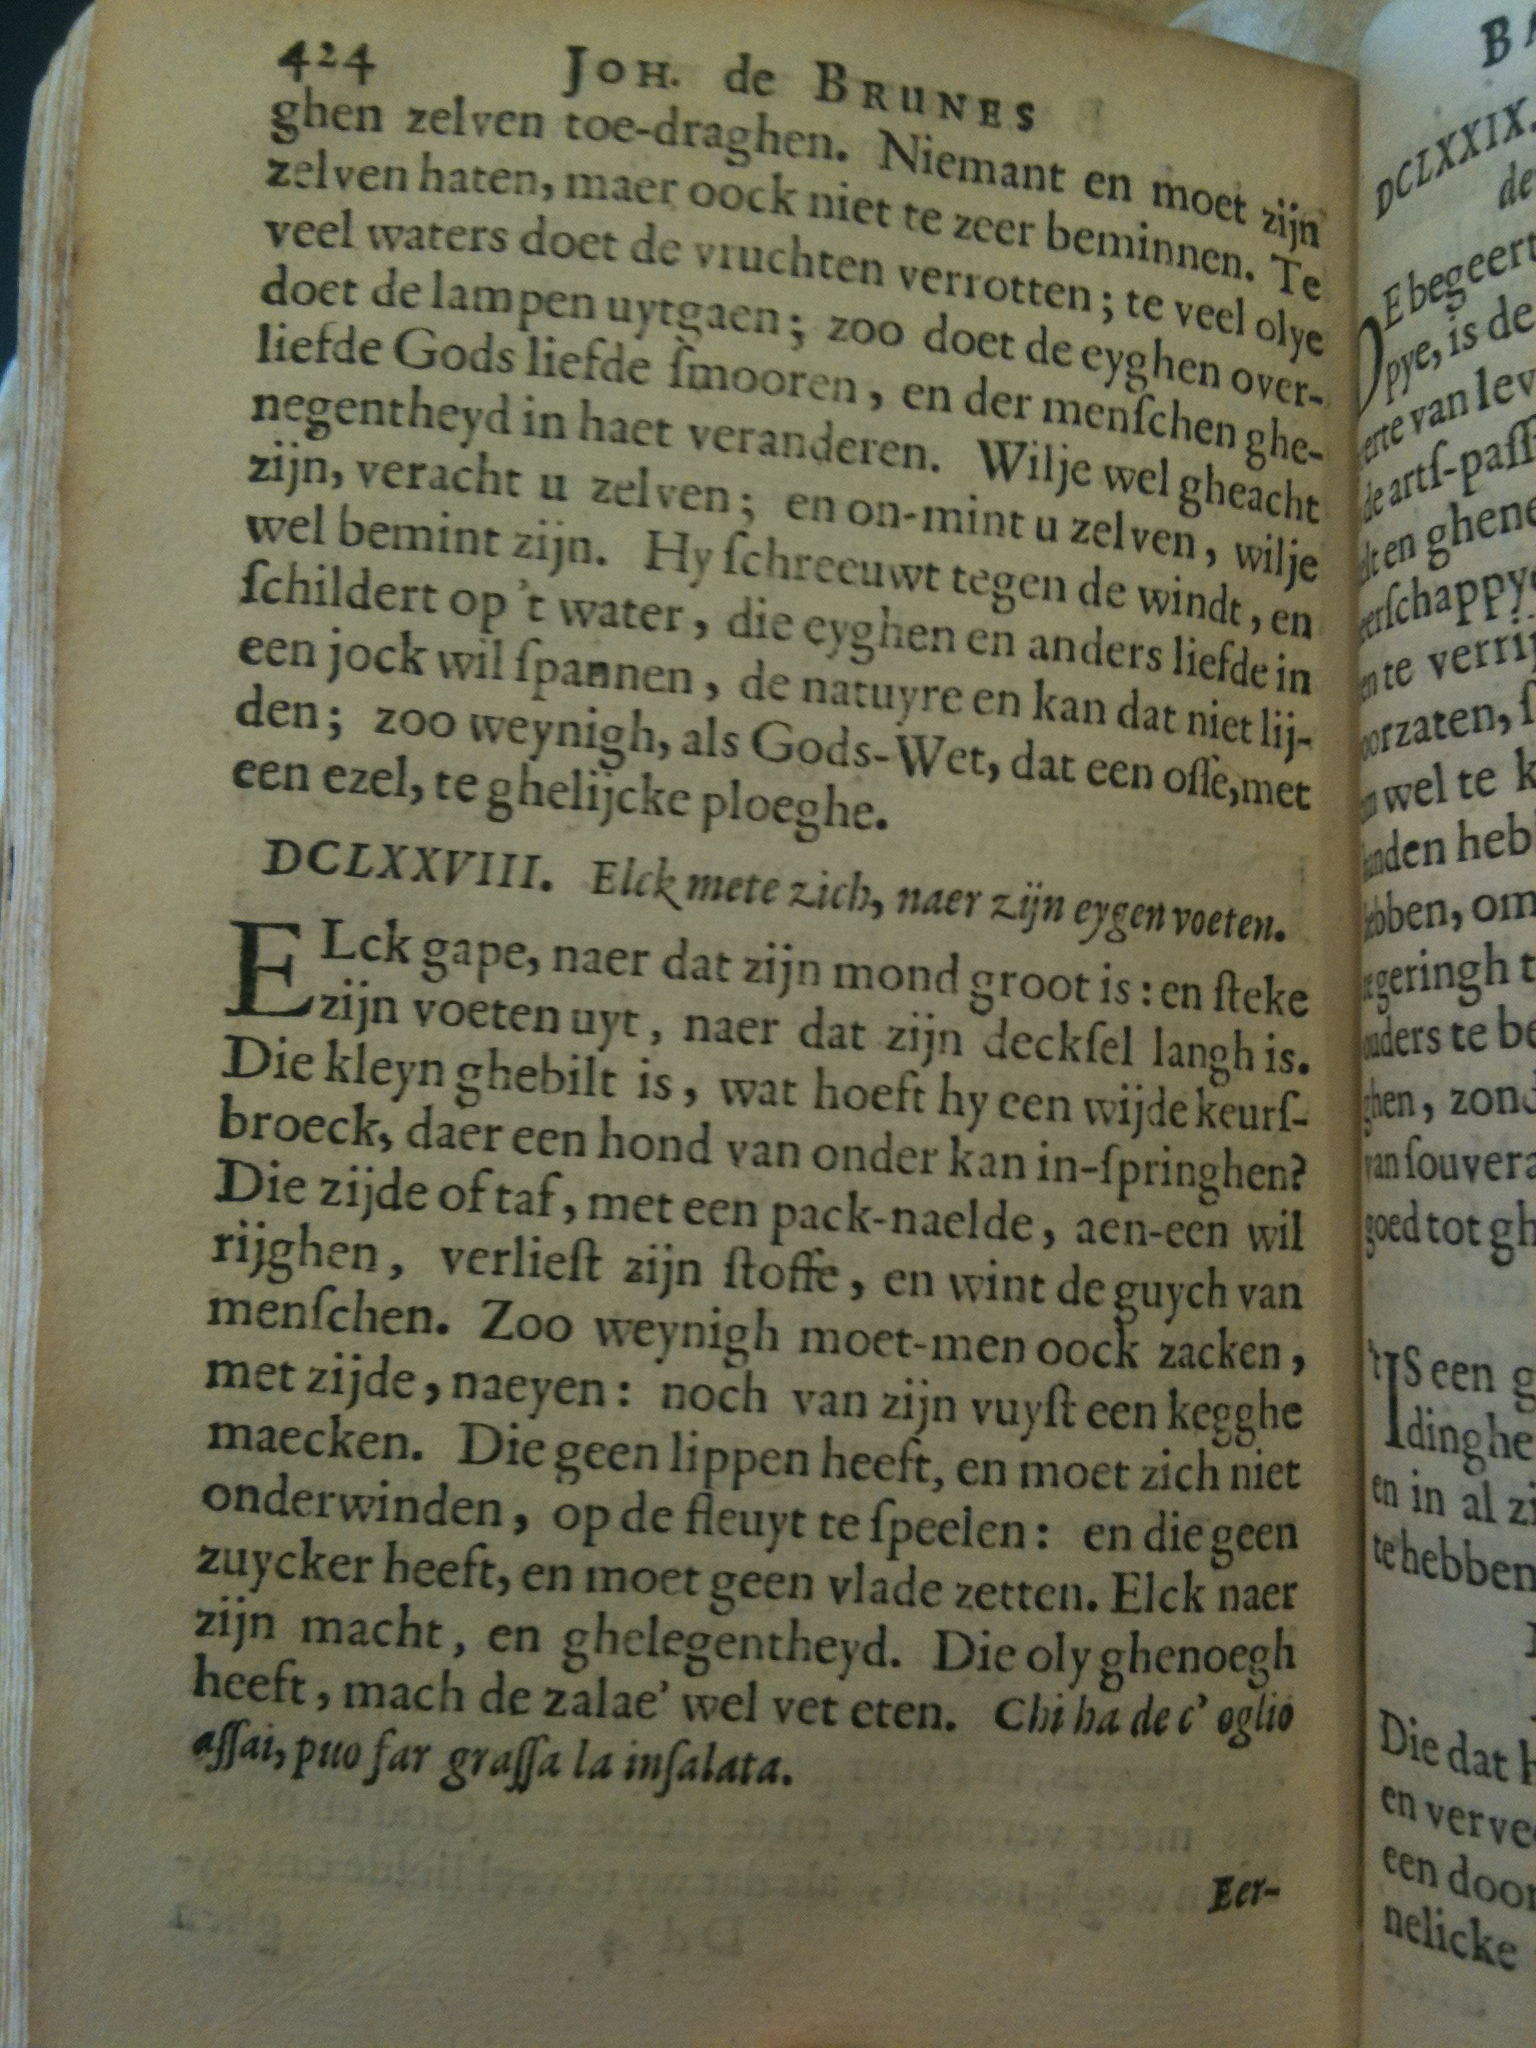 424 JOH. de BRUNES
ghen zelven toe-draghen. Niemant en moet zijn
zelven haten, maer oock niet te zeer beminnen. Te
veel waters doet de vruchten verrotten; te veel olye
doet de lampen uytgaen; zoo doet de eyghen over-
liefde Gods liefde ſmooren, en der menſchen ghe-
negentheyd in haet veranderen. Wilje wel gheacht
zijn, veracht u zelven; en on-mint u zelven, wilje
wel bemint zijn. Hy ſchreeuwt tegen de windt, en
ſchildert op 't water, die eyghen en anders liefde in
een jock wil ſpannen, de natuyre en kan dat niet lij-
den; zoo weynigh, als Gods-Wet, dat een oſſe, met
een ezel, te ghelijcke ploeghe.
DCLXXVIII. Elck mete zich, naer zijn eygen voeten.
ELck gape, naer dat zijn mond groot is: en ſteke
zijn voeten uyt, naer dat zijn deckſel langh is.
Die kleyn ghebilt is, wat hoeft hy een wijde keurſ-
broeck, daer een hond van onder kan in-ſpringhen?
Die zijde of taf, met een pack-naelde, aen-een wil
rijghen, verlieſt zijn ſtoffe, en wint de guych van
menſchen. Zoo weynigh moet-men oock zacken,
met zijde, naeyen: noch van zijn vuyſt een kegghe
maecken. Die geen lippen heeft, en moet zich niet
onderwinden, op de fleuyt te ſpeelen: en die geen
zuycker heeft, en moet geen vlade zetten. Elck naer
zijn macht, en ghelegentheyd. Die oly ghenoegh
heeft, mach de zalae' wel vet eten. Chi ha de c' oglio
aſſai, puo far graſſa la inſalata.
Eer-
DCLXXIX.
de
E begeert
pye, is de
erte van lev
de artſ-paſſ
en ghene
erſchappy
te verrij
orzaten, ſ
wel te k
anden heb
ebben, om
geringh t
ouders te be
ghen, zond
van ſouvera
goed tot gh
'tIS een g
dinghe
en in al zi
te hebben
Die dat h
en verve
een door
nelicke